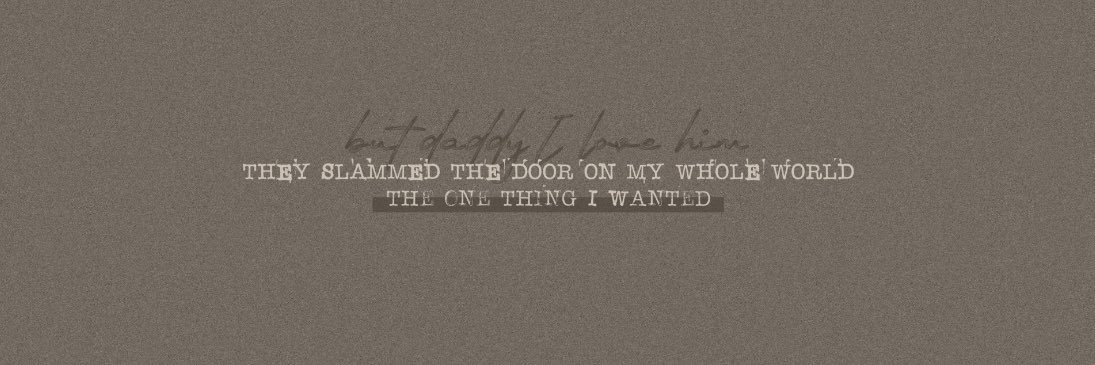 but daddy I love him
THEY SLAMMED THE DOOR ON MY WHOLE WORLD
THE ONE THING I WANTED